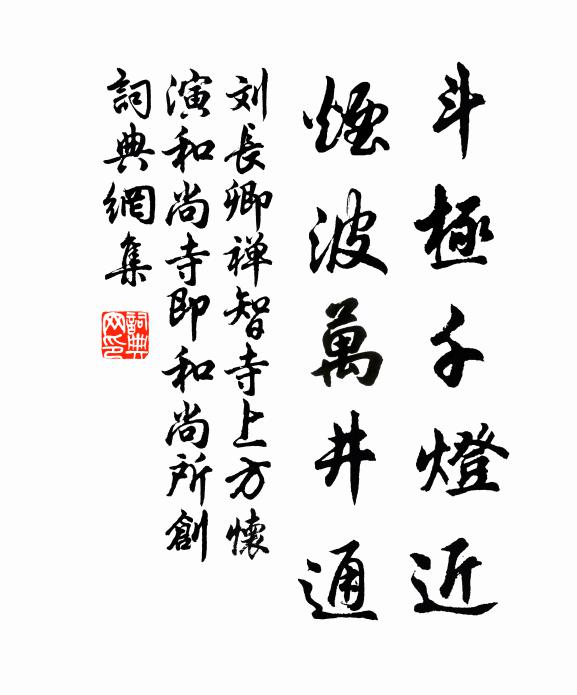 斗極千燈近
煙波萬井通
刘長卿禅智寺上方懷
演和尚寺即和尚所創
詞典網集
詞典網印